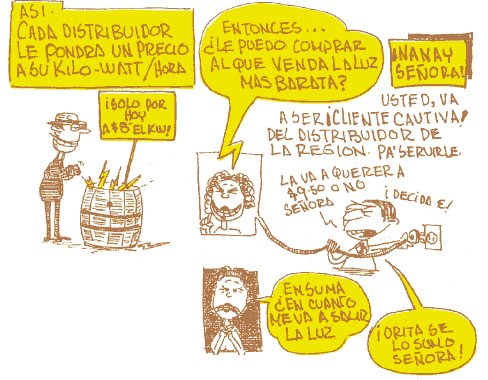 ASI.
CADA DISTRIBUIDOR
LE PONDRA UN PRECIO
A SU KILO-WATT/HORA
¡SOLO POR
HOY
A $8- EL KW!
ENTONCES...
¿LE PUEDO COMPRAR
AL QUE VENDA LA LUZ
MAS BARATA?
¡NANAY
SEÑORA!
USTED, VA
A SER ¡CLIENTE CAUTIVA!
DEL DISTRIBUIDOR DE
LA REGION. PA'SERVIRLE.
LA VA A QUERER A
$9.50 O NO
SEÑORA
¡DECIDASE!
EN SUMA
¿EN CUANTO
ME VA A SALIR
LA LUZ
¡ORITA SE
LO SUMO
SEÑORA!